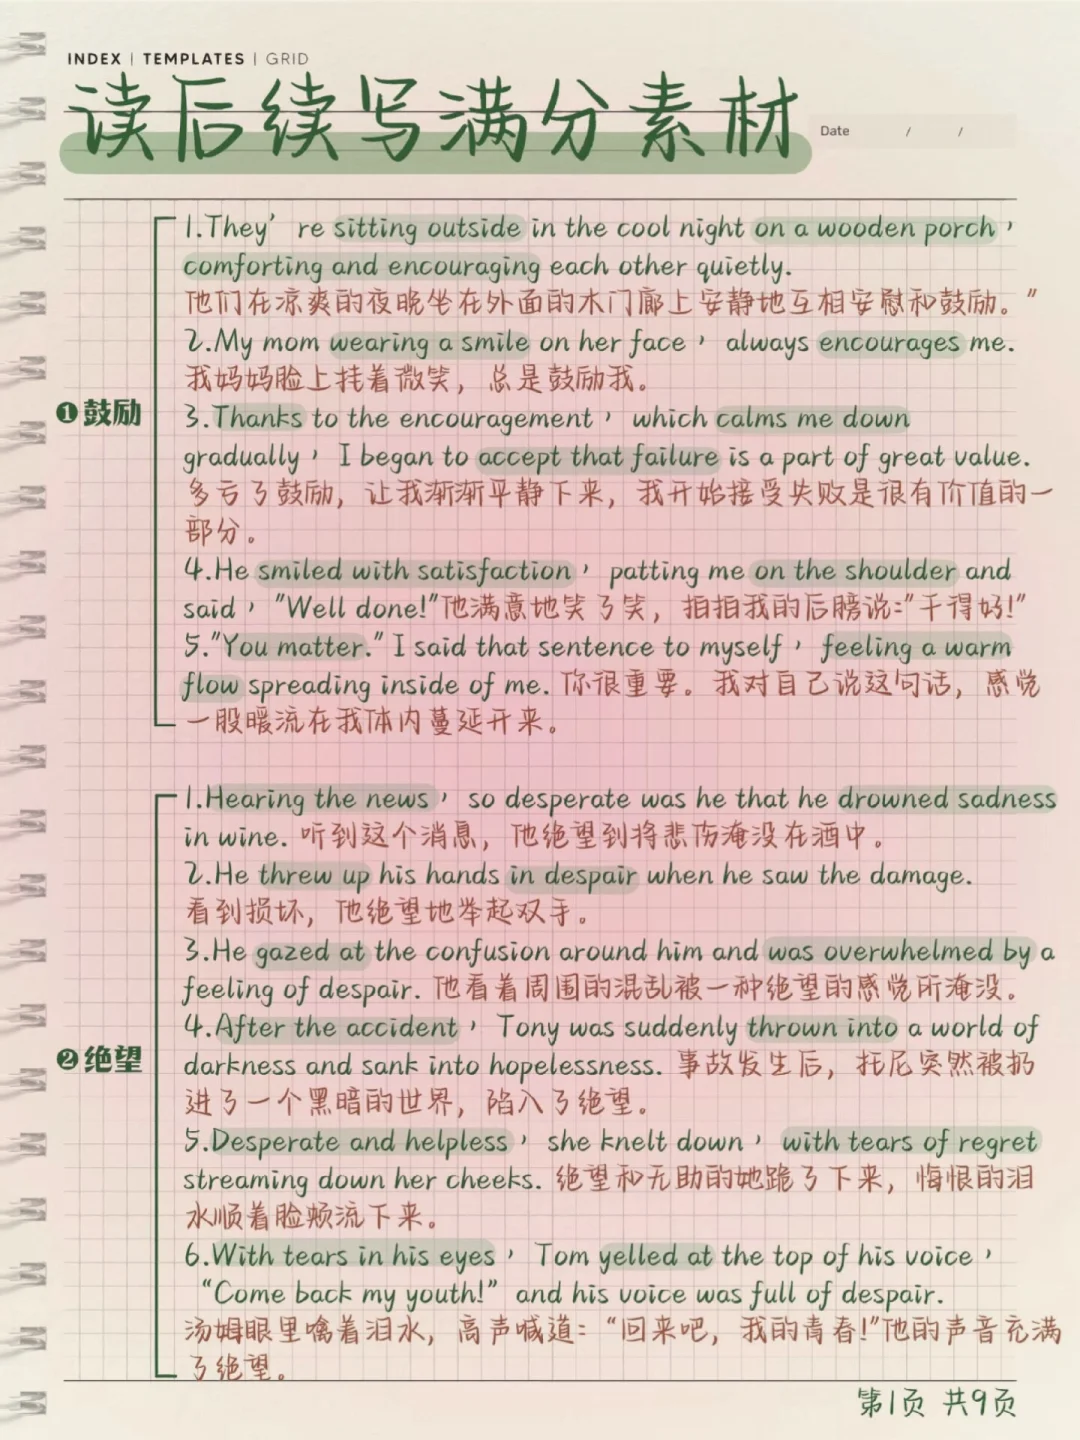 INDEX | TEMPLATES | GRID
读后续写满分素材
Date / /
1.They’ re sitting outside in the cool night on a wooden porch，
comforting and encouraging each other quietly.
他们在凉爽的夜晚坐在外面的木门廊上安静地互相安慰和鼓励。”
2.My mom wearing a smile on her face， always encourages me.
我妈妈脸上挂着微笑，总是鼓励我。
❶鼓励
3.Thanks to the encouragement， which calms me down
gradually， I began to accept that failure is a part of great value.
多亏了鼓励，让我渐渐平静下来，我开始接受失败是很有价值的一
部分。
4.He smiled with satisfaction， patting me on the shoulder and
said， “Well done!”他满意地笑了笑，拍拍我的后膀说:“干得好!”
5.“You matter.” I said that sentence to myself， feeling a warm
flow spreading inside of me. 你很重要。我对自己说这句话，感觉
一股暖流在我体内蔓延开来。
1.Hearing the news， so desperate was he that he drowned sadness
in wine. 听到这个消息，他绝望到将悲伤淹没在酒中。
2.He threw up his hands in despair when he saw the damage.
看到损坏，他绝望地举起双手。
3.He gazed at the confusion around him and was overwhelmed by a
feeling of despair. 他看着周围的混乱被一种绝望的感觉所淹没。
4.After the accident， Tony was suddenly thrown into a world of
❷绝望
darkness and sank into hopelessness. 事故发生后，托尼突然被扔
进了一个黑暗的世界，陷入了绝望。
5.Desperate and helpless， she knelt down， with tears of regret
streaming down her cheeks. 绝望和无助的她跪了下来，悔恨的泪
水顺着脸颊流下来。
6.With tears in his eyes， Tom yelled at the top of his voice，
“Come back my youth!” and his voice was full of despair.
汤姆眼里噙着泪水，高声喊道:“回来吧，我的青春!”他的声音充满
了绝望。
第1页 共9页